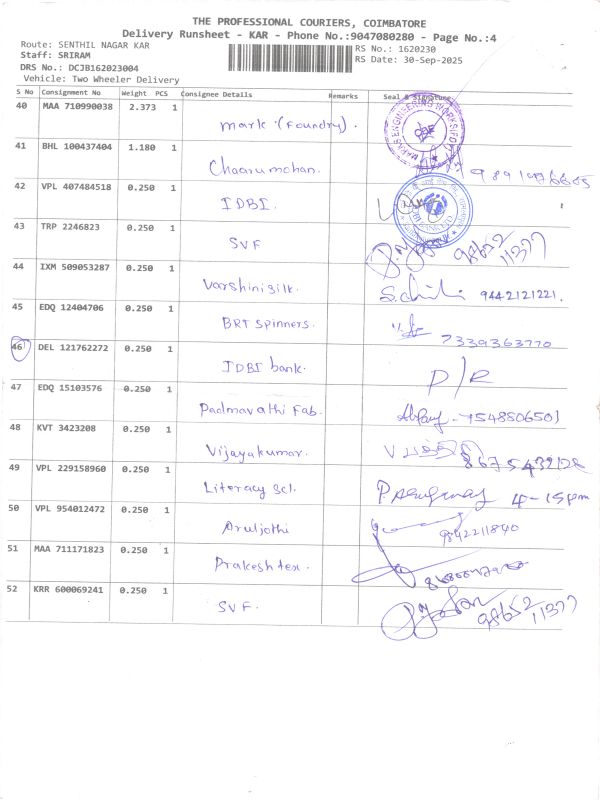 THE PROFESSIONAL COURIERS, COIMBATORE
Delivery Runsheet - KAR - Phone No.:9047080280 - Page No.:4
Route: SENTHIL NAGAR KAR
RS No.: 1620230
Staff: SRIRAM
RS Date: 30-Sep-2025
DRS No.: DCJB162023004
Vehicle: Two Wheeler Delivery
S No Consignment No Weight PCS Consignee Details Remarks Seal & Signature
40 MAA 710990038 2.373 1
Mark (Foundry).
41 BHL 100437404 1.180 1
Chaarumohan.
42 VPL 407484518 0.250 1
IDBI.
43 TRP 2246823 0.250 1
SVF
98652
11377
44 IXM 509053287 0.250 1
Varshinisilk.
9442121221.
45 EDQ 12404706 0.250 1
BRT spinners.
7339363770
46 DEL 121762272 0.250 1
IDBI bank.
D/R
47 EDQ 15103576 0.250 1
Padmavathi Fab.
7548506501
48 KVT 3423208 0.250 1
Vijayakumar.
49 VPL 229158960 0.250 1
Literacy Scl.
4-15pm
50 VPL 954012472 0.250 1
Aruljothi
9842211840
51 MAA 711171823 0.250 1
Prakeshtex.
52 KRR 600069241 0.250 1
SVF.
98652
11377